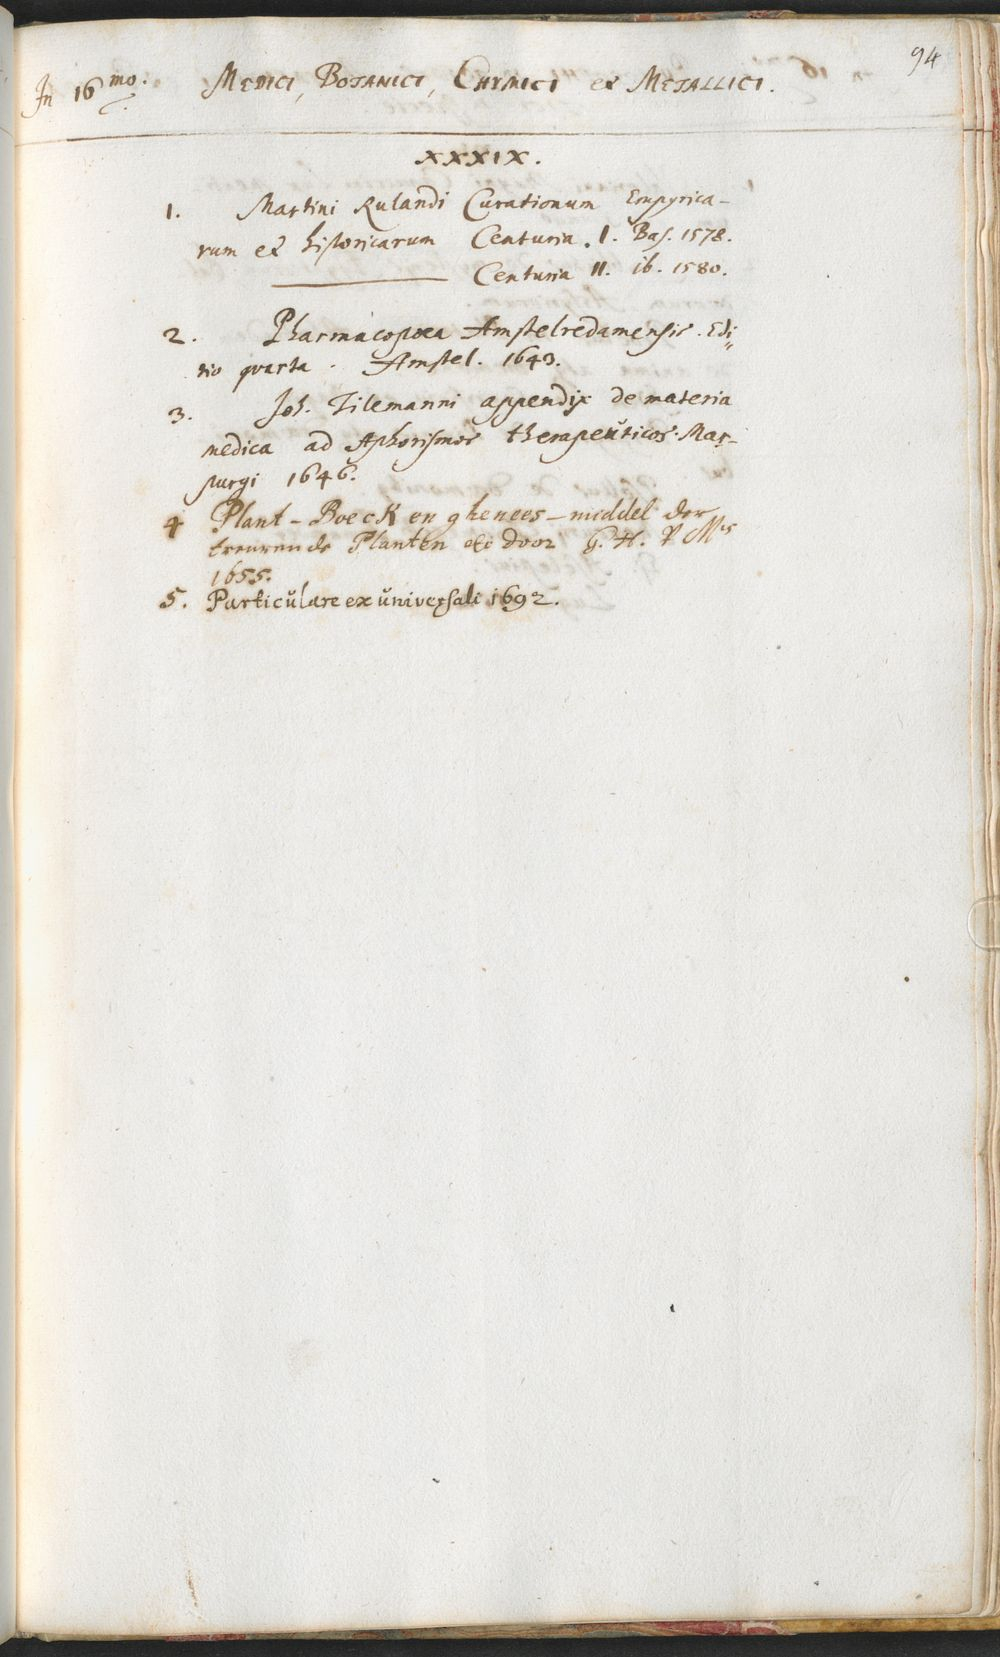 94
In 16mo. MEDICI, BOTANICI, CHYMICI et METALLICI.
XXXIX.
1. Martini Rulandi Curationum Empyrica-
rum et historicarum Centuria. I. Bas. 1578.
Centuria II. ib. 1580.
2. Pharmacopœa Amstelredamensis. Edi=
tio quarta. Amstel. 1643.
3. Joh. Tilemanni appendix de materia
medica ad Aphorismos therapeuticos. Mar-
purgi 1646.
4 Plant-Boeck en ghenees-middel der
treurende Planten etc door G. H. P Mis
1655.
5. Particulare ex universali 1692.